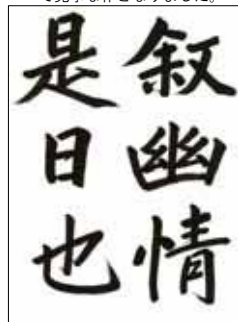 叙幽情
是日也